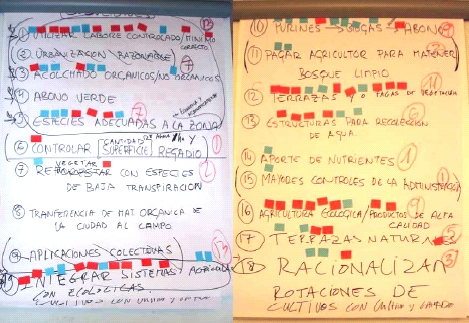 ① UTILIZAR LABOREO CONTROLADO/MINIMO 13
CORRECTO
② URBANIZACION RAZONABLE
③ ACOLCHADO ORGANICOS/NO ORGANICOS 7
④ ABONO VERDE
⑤ ESPECIES ADECUADAS A LA ZONA 2
⑥ CONTROLAR CANTIDAD DE AGUA/Ha y
SUPERFICIE REGADIO 1
VEGETAR
⑦ CON ESPECIES 2
DE BAJA TRANSPIRACION
⑧ TRANFERENCIA DE MAT. ORGANICA DE
LA CIUDAD AL CAMPO
⑨ APLICACIONES COLECTIVAS 13
INTEGRAR SISTEMAS AGRICOLAS
CON ECOLOGICAS.
CULTIVOS CON
⑩ PURINES → → ABONO
⑪ PAGAR AGRICULTOR PARA MANTENER
BOSQUE LIMPIO
⑫ TERRAZAS y DE VEGETACION 11
⑬ ESTRUCTURAS PARA RECOLECCION 6
DE AGUA.
⑭ APORTE DE NUTRIENTES 1
⑮ MAYORES CONTROLES DE LA ADMINISTRACION 1
⑯ AGRICULTURA ECOLOGICA/PRODUCTOS DE ALTA 9
CALIDAD
⑰ TERRAZAS NATURALES 5
18 RACIONALIZAR 3
ROTACIONES DE
CULTIVOS CON